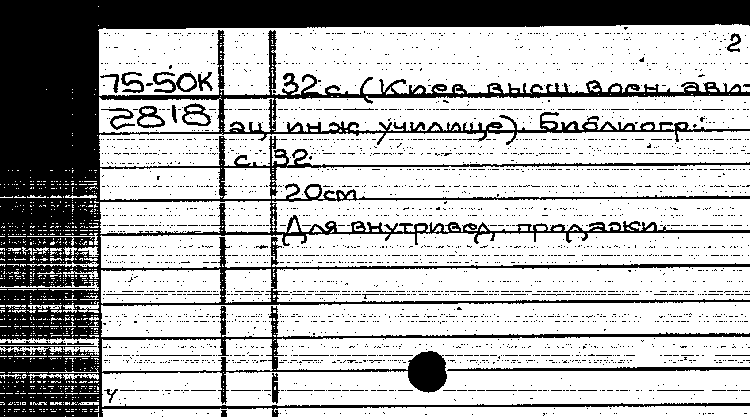 2
75-50К 32 с. (Киев. высш. воен. ави-
2818 ац. инж. училище). Библиогр.:
с. 32.
20см.
Для внутривед. продажи.